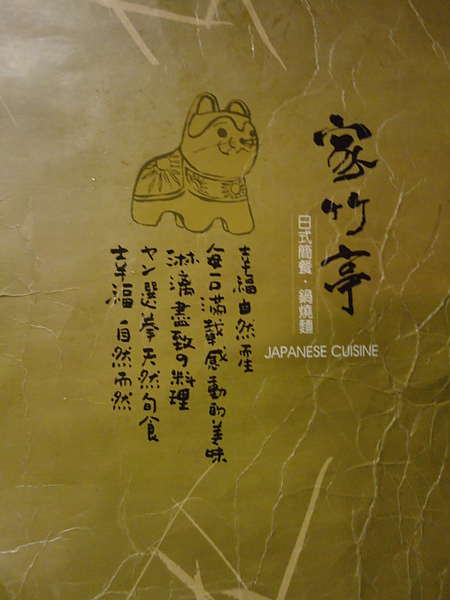 家竹亭
日式簡餐・鍋燒麵
JAPANESE CUISINE
幸福自然而生
每口滿載感動的美味
淋漓盡致の料理
ヤン選拳天然旬食
幸福自然而然